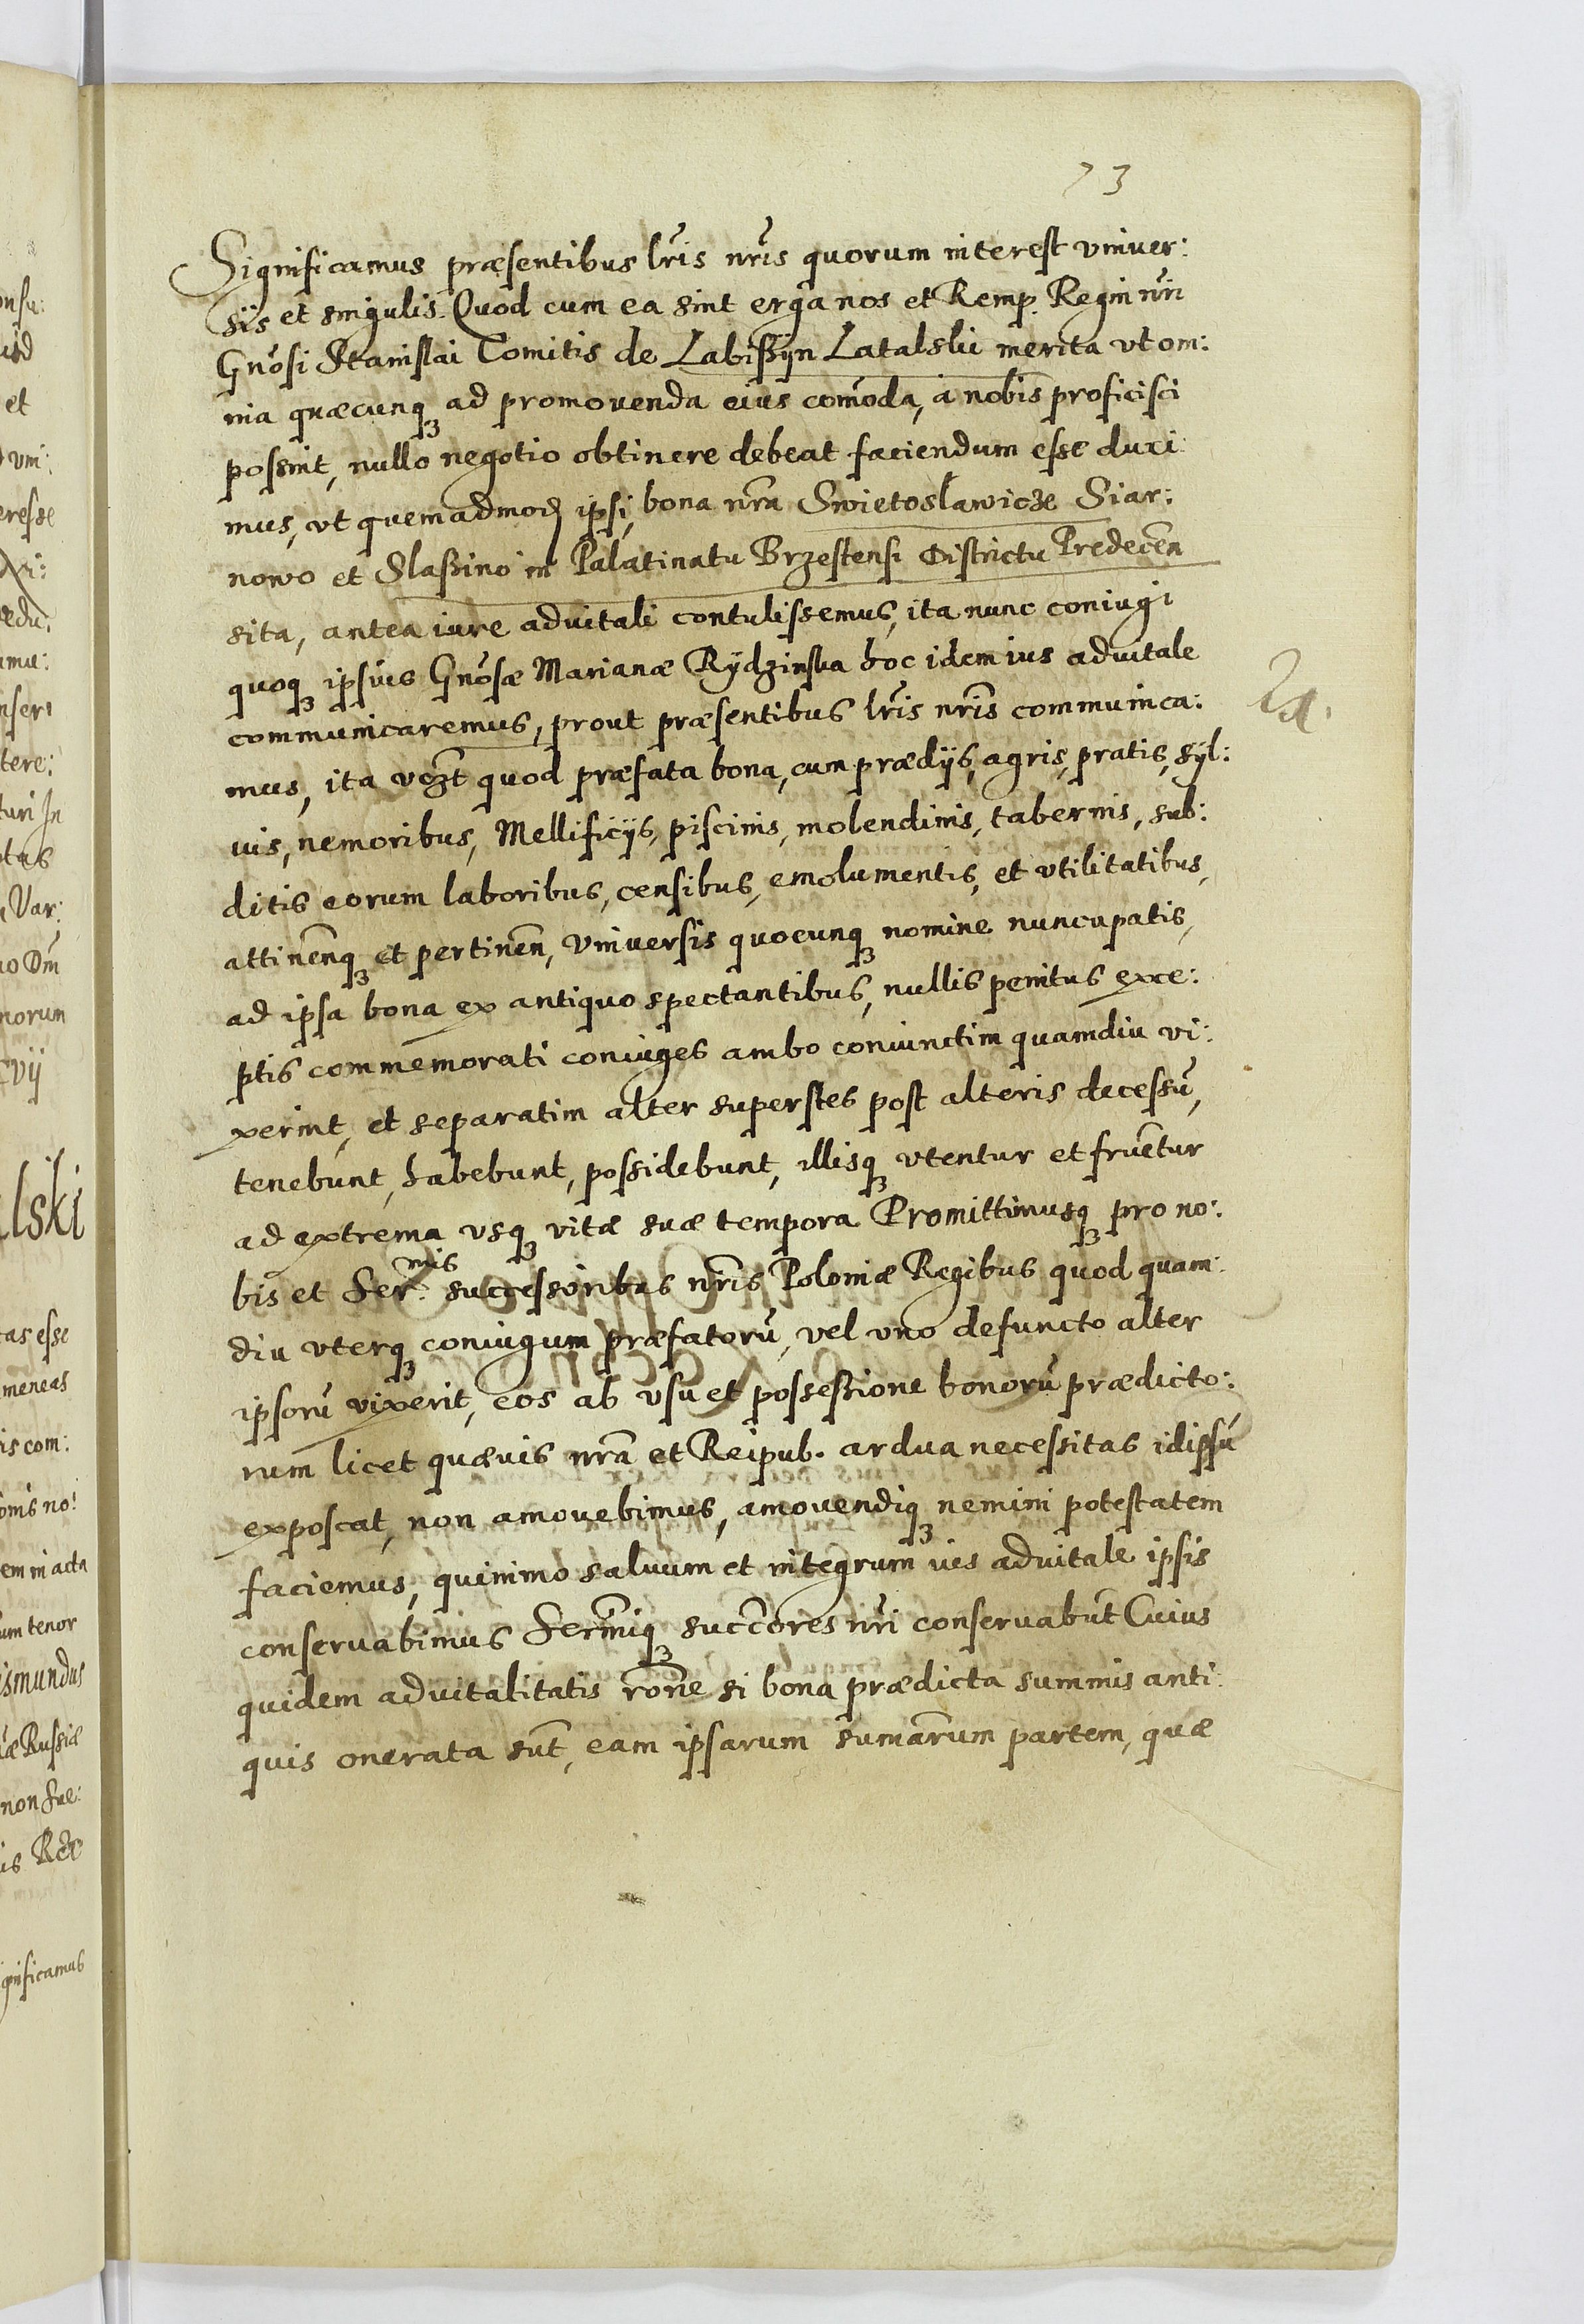 73
Significamus præsentibus lr̃is nr̃is quorum interest vniuer:
sis et singulis. Quod cum ea sint erga nos et Remp. Regni nr̃i
Gñosi Stanislai Comitis de Labissijn Latalski merita vt om:
nia quæcunqꝫ ad promouenda eius com̃oda, a nobis proficisci
possint, nullo negotio obtinere debeat faciendum esse duxi
mus, vt quemadmod̃ ipsi, bona nr̃a Swietoslawicze Siar:
nowo et Slassino in Palatinatu Brzestensi Districtu Predecen̄
sita, antea iure aduitali contulissemus, ita nunc coniugi
quoqꝫ ipsius Gñosæ Marianæ Rydzinska hoc idem ius aduitale
communicaremus, prout præsentibus lr̃is nr̃is communica:
mus, ita vꝫt quod præfata bona, cum prædijs, agris, pratis, syl:
uis, nemoribus, Mellificijs, piscinis, molendinis, tabernis, sub:
ditis eorum laboribus, censibus, emolumentis, et vtilitatibus,
attinen̄qꝫ et pertinen̄, vniuersis quocunqꝫ nomine nuncupatis,
ad ipsa bona ex antiquo spectantibus, nullis penitus exce:
ptis commemorati coniuges ambo coniunctim quamdiu vi:
xerint, et separatim alter superstes post alteris decessũ,
tenebunt, habebunt, possidebunt, illisqꝫ vtentur et fruẽtur
ad extrema vsqꝫ vitæ suæ tempora Promittimusqꝫ pro no:
bis et Ser.mis successoribus nr̃is Poloniæ Regibus quod quam:
diu vterqꝫ coniugum præfatorũ, vel vno defuncto alter
ipsorũ vixerit, eos ab vsu et possessione bonorũ prædicto:
rum licet quæuis nr̃a et Reipub. ardua necessitas idipsũ
exposcat, non amouebimus, amouendiqꝫ nemini potestatem
faciemus, quinimo saluum et integrum ius aduitale ipsis
conseruabimus Serm̃iqꝫ succ̃ores nr̃i conseruabũt Cuius
quidem aduitalitatis rõne si bona prædicta summis anti:
quis onerata sũt, eam ipsarum sum̃arum partem, quæ